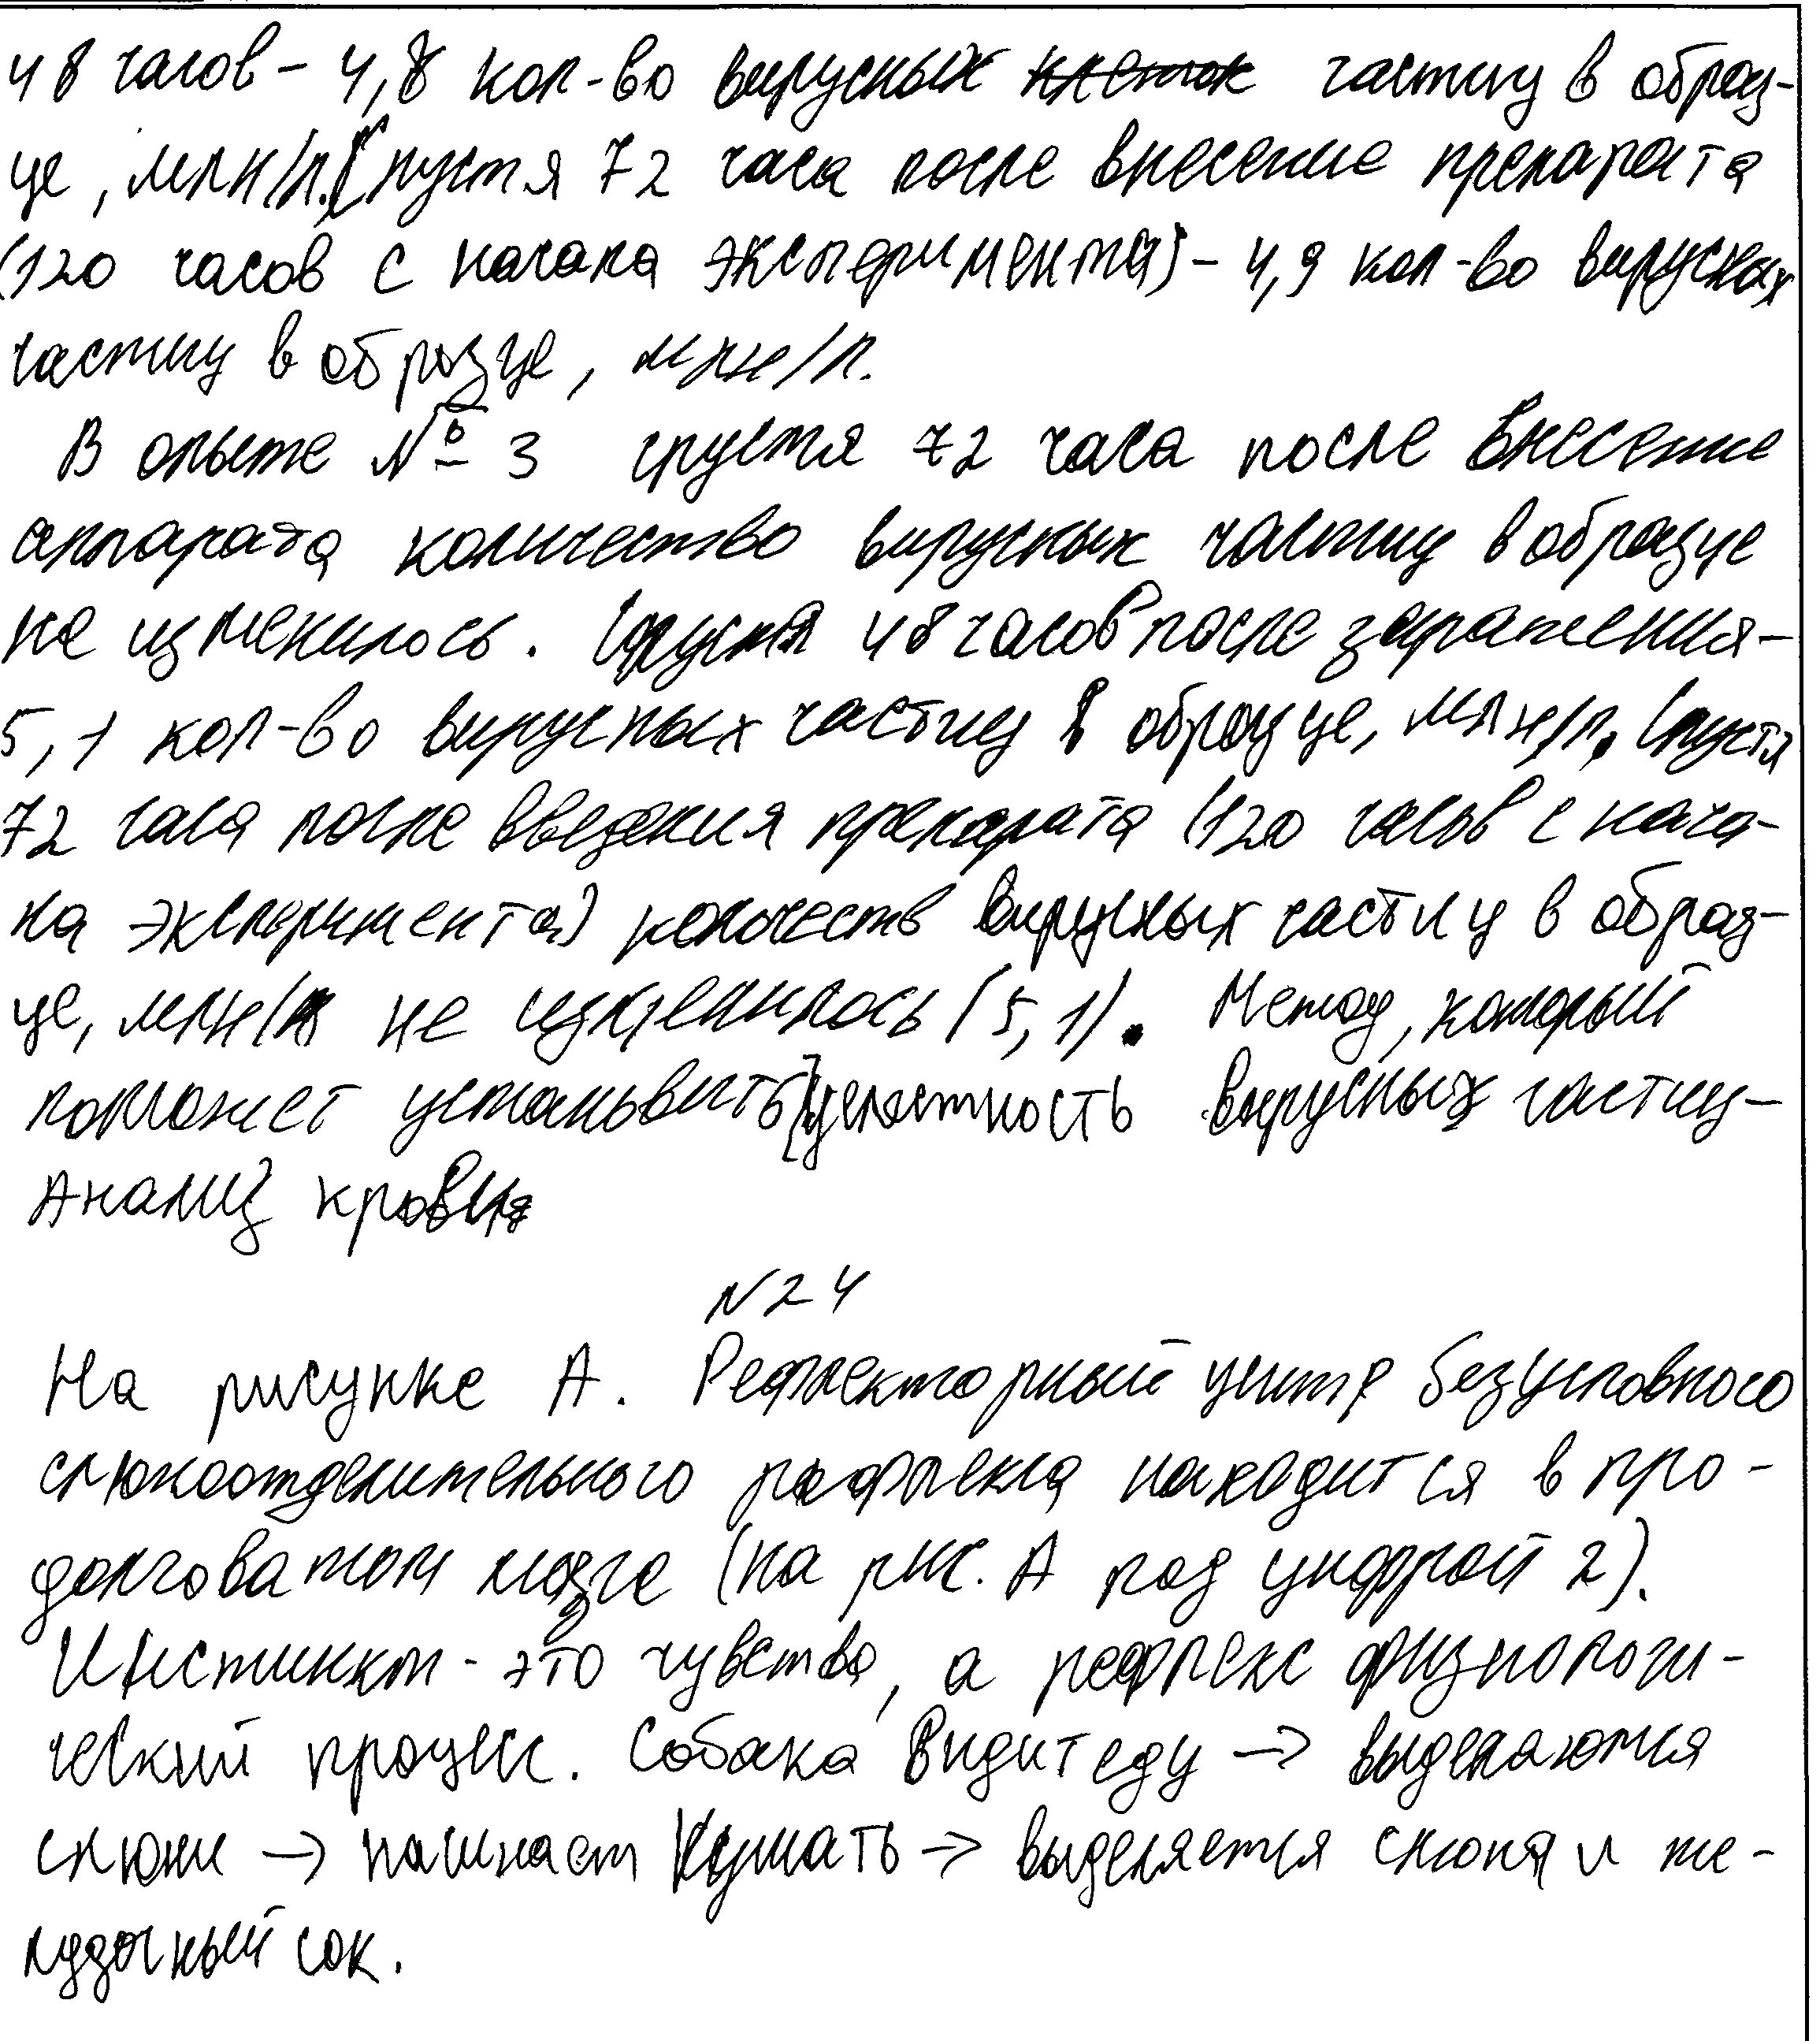 48 часов - 4,8 кол-во вирусных клеток частиц в образ-
це, млн/л. Спустя 72 часа после внесение препарата
(120 часов с начала эксперимента) - 4,9 кол-во вирусных
частиц в образце, млн/л.
В опыте № 3 спустя 72 часа после внесение
аппарата количество вирусных частиц в образце
не изменилось. Спустя 48 часов после заражения -
5,1 кол-во вирусных частиц в образце, млн/л. Спустя
72 часа после введения препарата (120 часов с нача-
ла эксперимента) количеств вирусных частиц в образ-
це, млн/л не изменилось (5,1). Метод, который
поможет установить целостность вирусных частиц -
Анализ крови
№24
На рисунке А. Рефлекторный центр безусловного
слюноотделительного рефлекса находится в про-
долговатом мозге (на рис. А под цифрой 2).
Инстинкт - это чувство, а рефлекс физиологи-
ческий процесс. Собака видит еду → выделаются
слюни → начинает кушать → выделяется слюна и же-
лудочный сок.